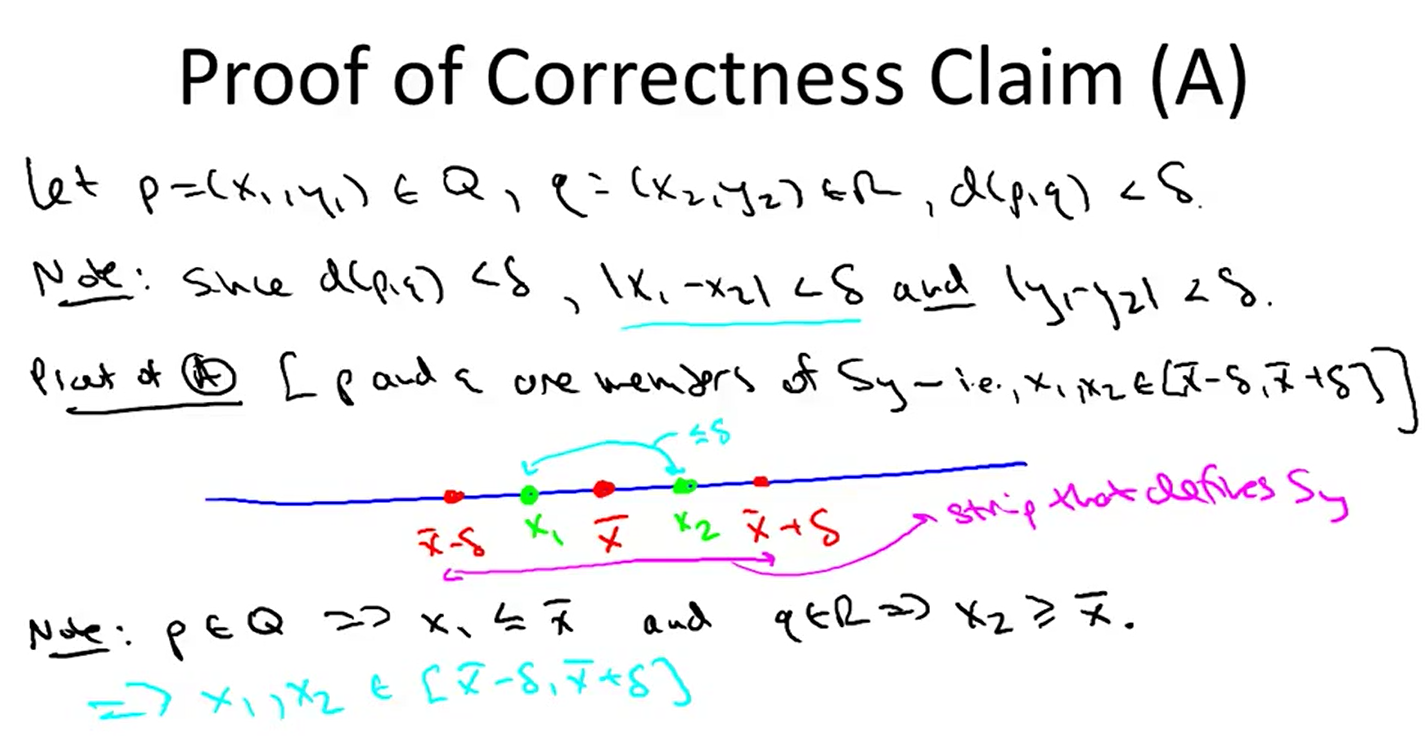 Proof of Correctness Claim (A)
Let p=(x₁,y₁) ∈ Q, q=(x₂,y₂) ∈ R, d(p,q) < δ.
Note: Since d(p,q) < δ, |x₁-x₂| < δ and |y₁-y₂| < δ.
Proof of (A) [p and q are members of Sy - i.e., x₁,x₂ ∈ [x̄-δ, x̄+δ]]
≤δ
x̄-δ x₁ x̄ x₂ x̄+δ
strip that defines Sy
Note: p ∈ Q => x₁ ≤ x̄ and q ∈ R => x₂ ≥ x̄.
=> x₁,x₂ ∈ [x̄-δ, x̄+δ]